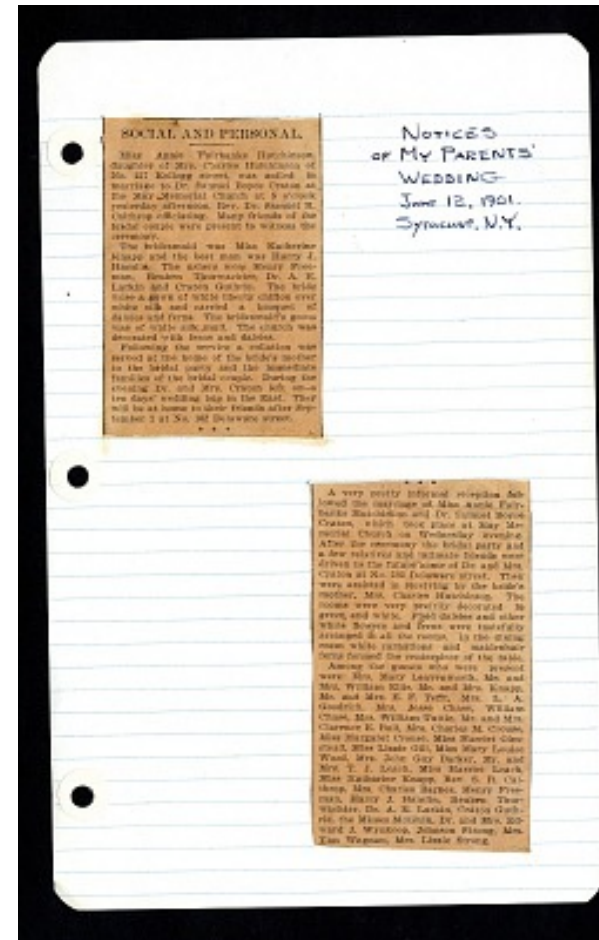 SOCIAL AND PERSONAL.
Miss Annie Fairbanks Hutchinson,
daughter of Mrs. Charles Hutchinson of
No. Kellogg street, was united in
marriage to Dr. Samuel Boyce Craton at
the May Memorial Church at o'clock
yesterday afternoon, Rev. Dr. Samuel R.
Calthrop officiating. Many friends of the
bridal couple were present to witness the
ceremony.
The bridesmaid was Miss Katherine
Knapp and the best man was Harry J.
The ushers were Henry Free-
man, Reuben Dr. A. E.
Larkin and Craton Guthrie. The bride
wore a gown of white liberty chiffon over
white silk and carried a bouquet of
daisies and ferns. The bridesmaid's gown
was of white silk mull. The church was
decorated with ferns and daisies.
Following the service a collation was
served at the home of the bride's mother
to the bridal party and the immediate
families of the bridal couple. During the
evening Dr. and Mrs. Craton left on a
ten days' wedding trip in the East. They
will be at home to their friends after Sep-
tember 1 at No. Delaware street.
NOTICES
OF MY PARENTS'
WEDDING
June 12, 1901.
Syracuse, N.Y.
A very pretty informal reception fol-
lowed the marriage of Miss Annie Fair-
banks Hutchinson and Dr. Samuel Boyce
Craton, which took place at May Me-
morial Church on Wednesday evening.
After the ceremony the bridal party and
a few relatives and intimate friends were
driven to the future home of Dr. and Mrs.
Craton at No. Delaware street. They
were assisted in receiving by the bride's
mother, Mrs. Charles Hutchinson. The
rooms were very prettily decorated in
green and white. daisies and other
white flowers and ferns were tastefully
arranged in all the rooms. In the dining
room white carnations and maidenhair
ferns formed the centerpiece of the table.
Among the guests who were present
were: Mrs. Mary Leavenworth, Mr. and
Mrs. William Ellis, Mr. and Mrs. Knapp,
Mr. and Mrs. E. F. Mrs. L. A.
Goodrich, Mrs. Jesse Chase, William
Chase, Mrs. William Mr. and Mrs.
Clarence E. Mrs. Charles M. Crouse,
Miss Margaret Miss Harriet
Miss Lizzie Gill, Miss Mary Louise
Wood, Mrs. John Guy Mr. and
Mrs. T. J. Leach, Miss Harriet Leach,
Miss Katherine Knapp, Rev. S. R. Cal-
throp, Mrs. Charles Barnes, Henry Free-
man, Harry J. Reuben
Dr. A. E. Larkin, Craton Guth-
rie, the Misses Dr. and Mrs. Ed-
ward J. Wynkoop, Johnson Strong, Mrs.
Wagner, Mrs. Lizzie Strong.